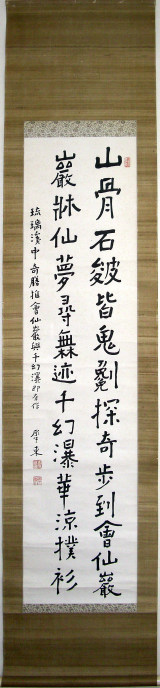 山骨石皴皆鬼劖探奇步到會仙巖
巖牀仙夢尋無迹千幻瀑華涼撲衫
琉璃溪中奇勝推會仙巖與千幻瀑即合作 犀東